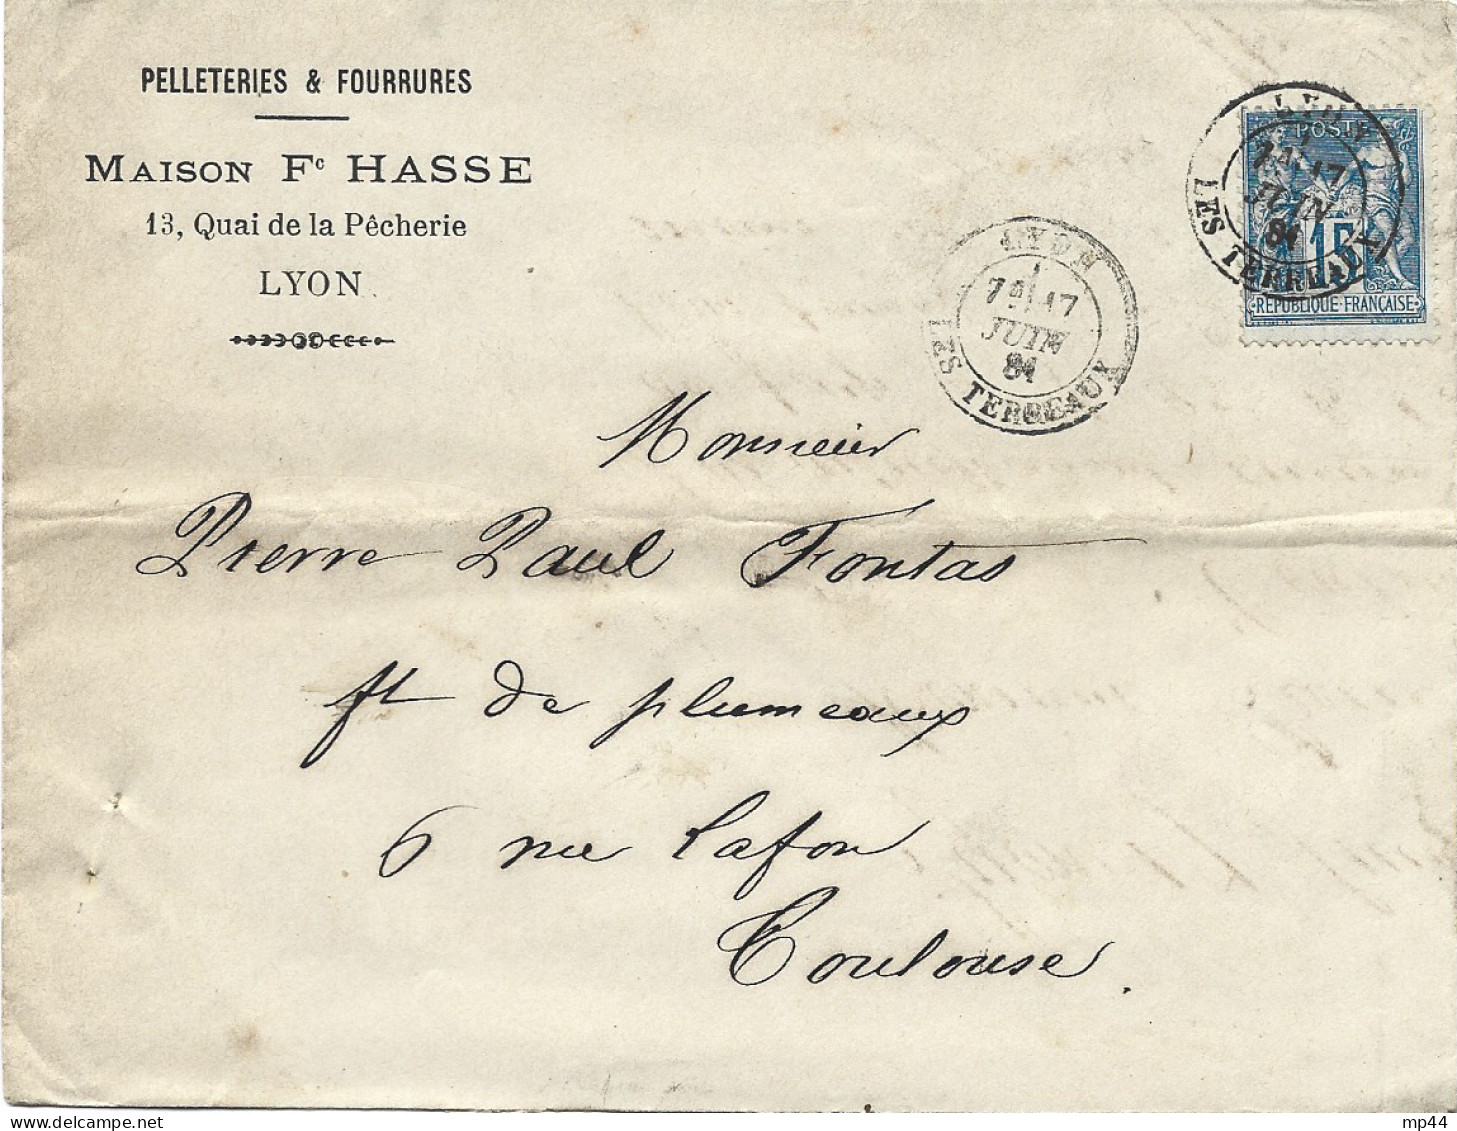 PELLETERIES & FOURRURES
MAISON Fᶜ HASSE
13, Quai de la Pêcherie
LYON
LYON
7 17
JUIN
81
LES TERREAUX
LYON
7 17
JUIN
81
LES TERREAUX
POSTE
15
REPUBLIQUE FRANÇAISE
Monsieur
Pierre Paul Fontas
ft de plumeaux
6 rue Lafon
Toulouse.
mp44